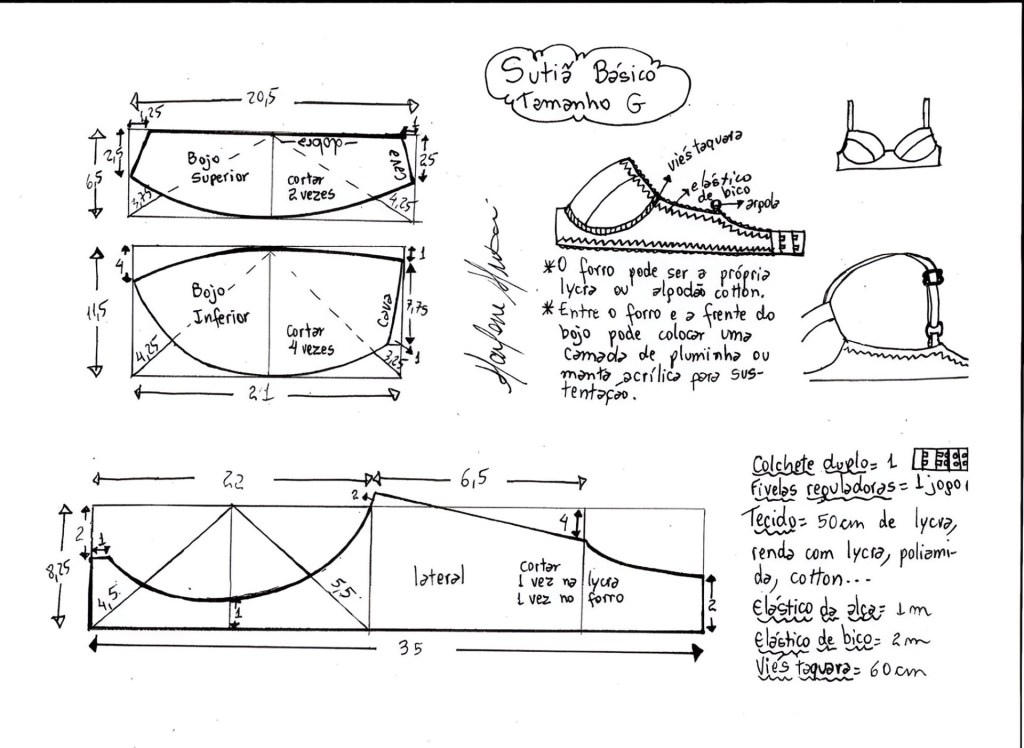 Sutiã Básico
Tamanho G
20,5
1,25
1
2,5
6,5
Bojo
Superior
dobra
cortar
2 vezes
cava
25
3,75
4,25
4
11,5
Bojo
Inferior
cortar
4 vezes
cava
1
7,75
1
4,25
3,25
21
viés taquara
elástico
de bico
argola
*O forro pode ser a própria
lycra ou algodão cotton.
*Entre o forro e a frente do
bojo pode colocar uma
camada de pluminha ou
manta acrílica para sus-
tentação.
22
6,5
2
2
1
8,25
4,5
1
5,5
4
lateral
cortar
1 vez na lycra
1 vez no forro
2
35
Colchete duplo = 1
Fivelas reguladoras = 1 jogo
Tecido = 50cm de lycra,
renda com lycra, poliami-
da, cotton...
Elástico da alça = 1m
Elástico de bico = 2m
Viés taquara = 60cm